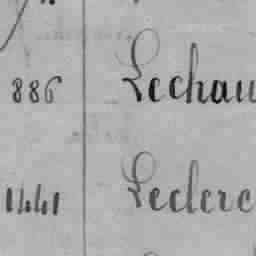 886 Lechau
1441 Leclerc